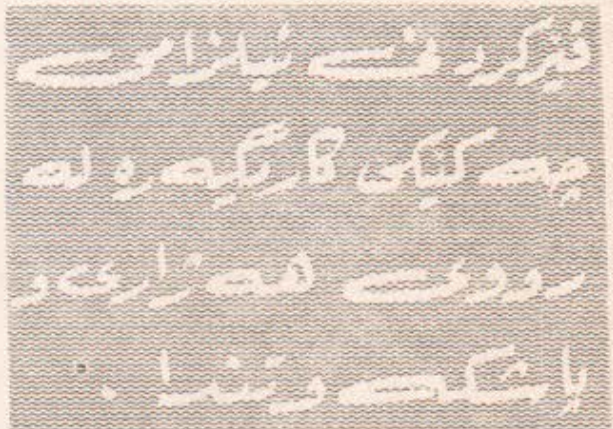 فێرکردنی ئیلزامی
چەکێکی کاریگەرە لە
رووی هەژاری و
پاشکەوتندا .